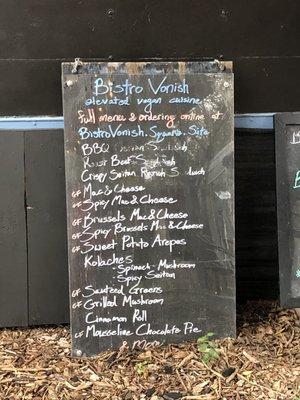 Bistro Vonish
elevated vegan cuisine
Full menu & ordering online at
BistroVonish.Square.Site
BBQ Seitan Sandwich
Roast Beet Sandwich
Crispy Seitan Ranch Sandwich
GF Mac & Cheese
GF Spicy Mac & Cheese
GF Brussels Mac & Cheese
GF Spicy Brussels Mac & Cheese
GF Sweet Potato Arepas
Kolaches
- Spinach-Mushroom
- Spicy Seitan
GF Sauteed Greens
GF Grilled Mushroom
Cinnamon Roll
GF Mousseline Chocolate Pie
& More